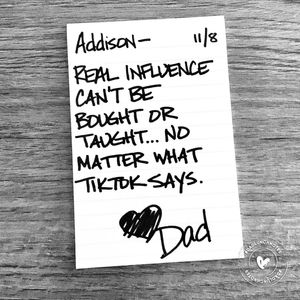 Addison— 11/8
REAL INFLUENCE
CAN'T BE
BOUGHT OR
TAUGHT... NO
MATTER WHAT
TIKTOK SAYS.
Dad